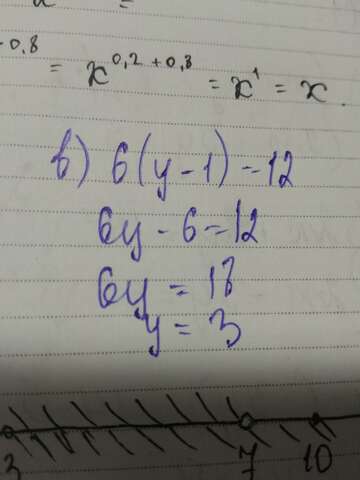 -0,8 = x^0,2+0,8 = x^1 = x.
в) 6(y-1)=12
6y-6=12
6y = 18
y = 3
3 7 10